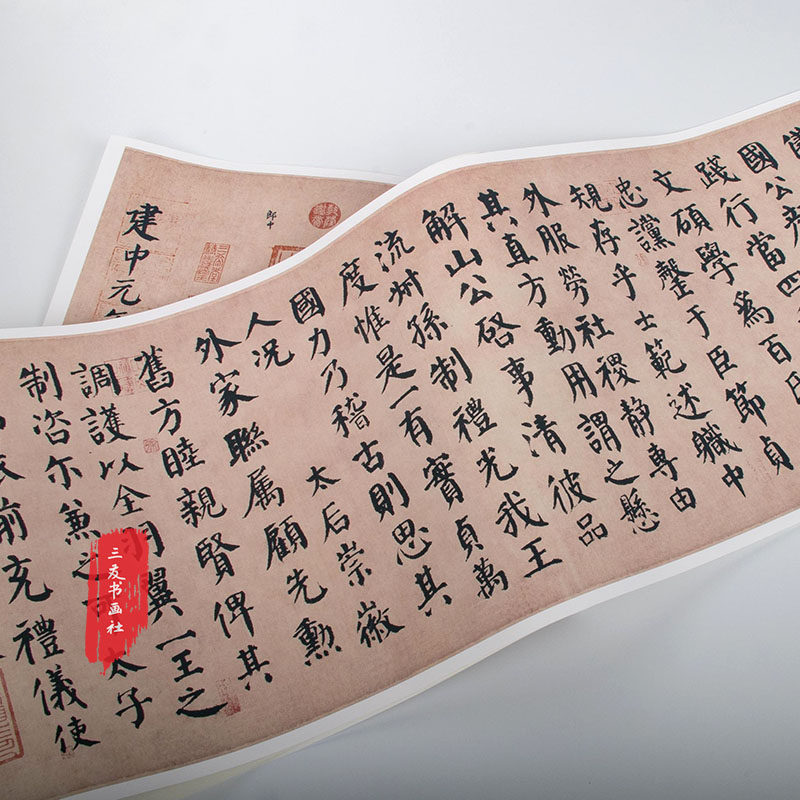 國公
踐行當四
文碩學為百氏
忠讜罄于臣節貞
規存乎士範述職中
外服勞社稷靜專由
其直方動用謂之懸
解山公啓事清彼品
流叔孫制禮光我王
度惟是一有實貞萬
國力乃稽古則思其
人况 太后崇徽
外家聯屬顧先勳
舊方睦親賢俾其
調護以全羽翼一王之
制咨尔兼之可 太子
前充禮儀使
郎中
建中元年
三友书画社